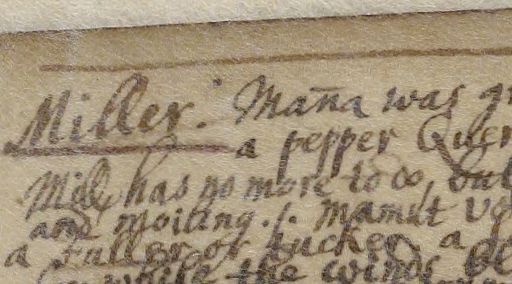 Miller. Mana was
a pepper Quer
has no more to
and moiling. mamut
a fuller or tucker, a
while the winds